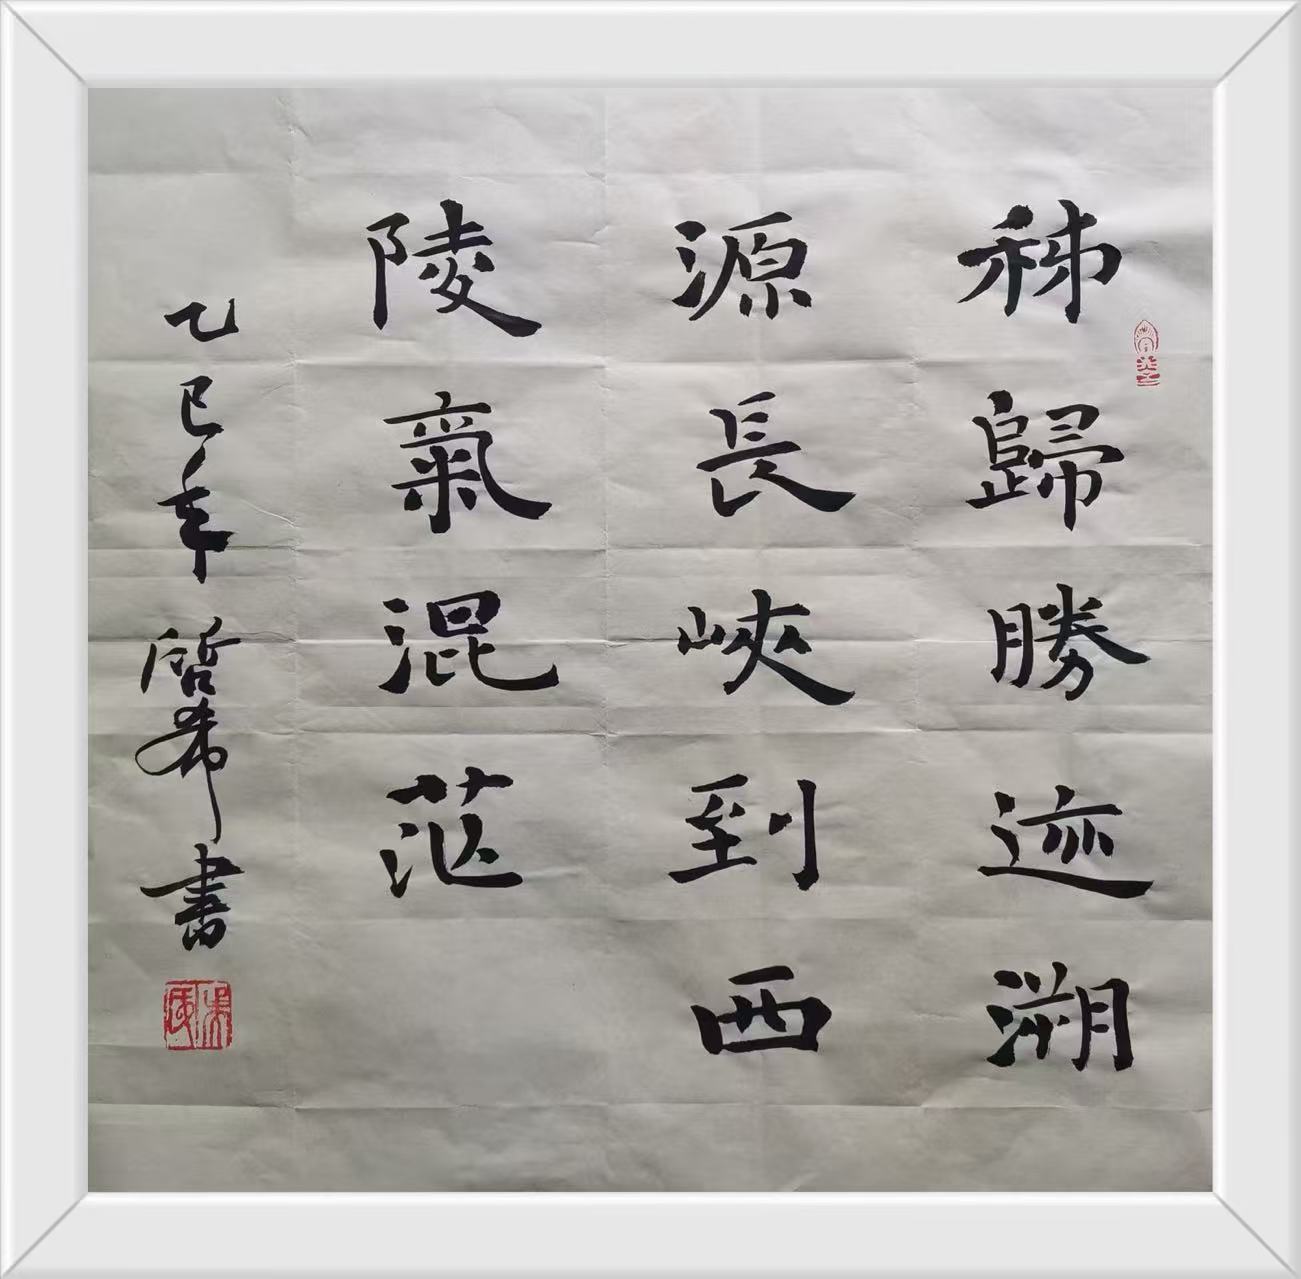 秭歸勝迹溯
源長峽到西
陵氣混茫
乙巳年啓希書